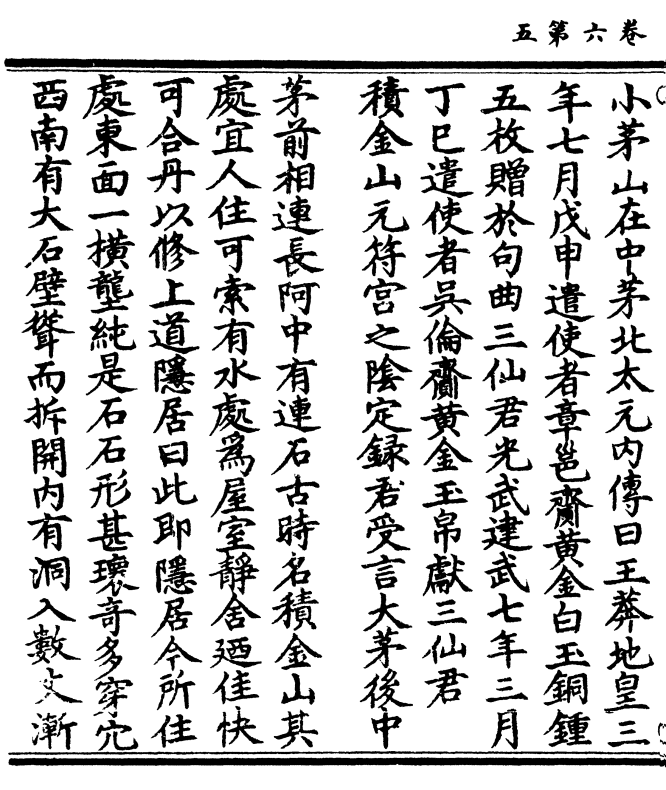 卷六第五
小茅山在中茅北太元内傳曰王莽地皇三
年七月戊申遣使者章邕齎黄金白玉銅鍾
五枚贈於句曲三仙君光武建武七年三月
丁巳遣使者吳倫齎黄金玉帛獻三仙君
積金山元符宫之隂定録君受言大茅後中
茅前相連長阿中有連石古時名積金山其
處宜人住可索有水處爲屋室靜舍廼佳快
可合丹以修上道隱居曰此即隱居今所住
處東面一横壟純是石石形甚瓌奇多穿穴
西南有大石壁聳而拆開内有洞入數丈漸